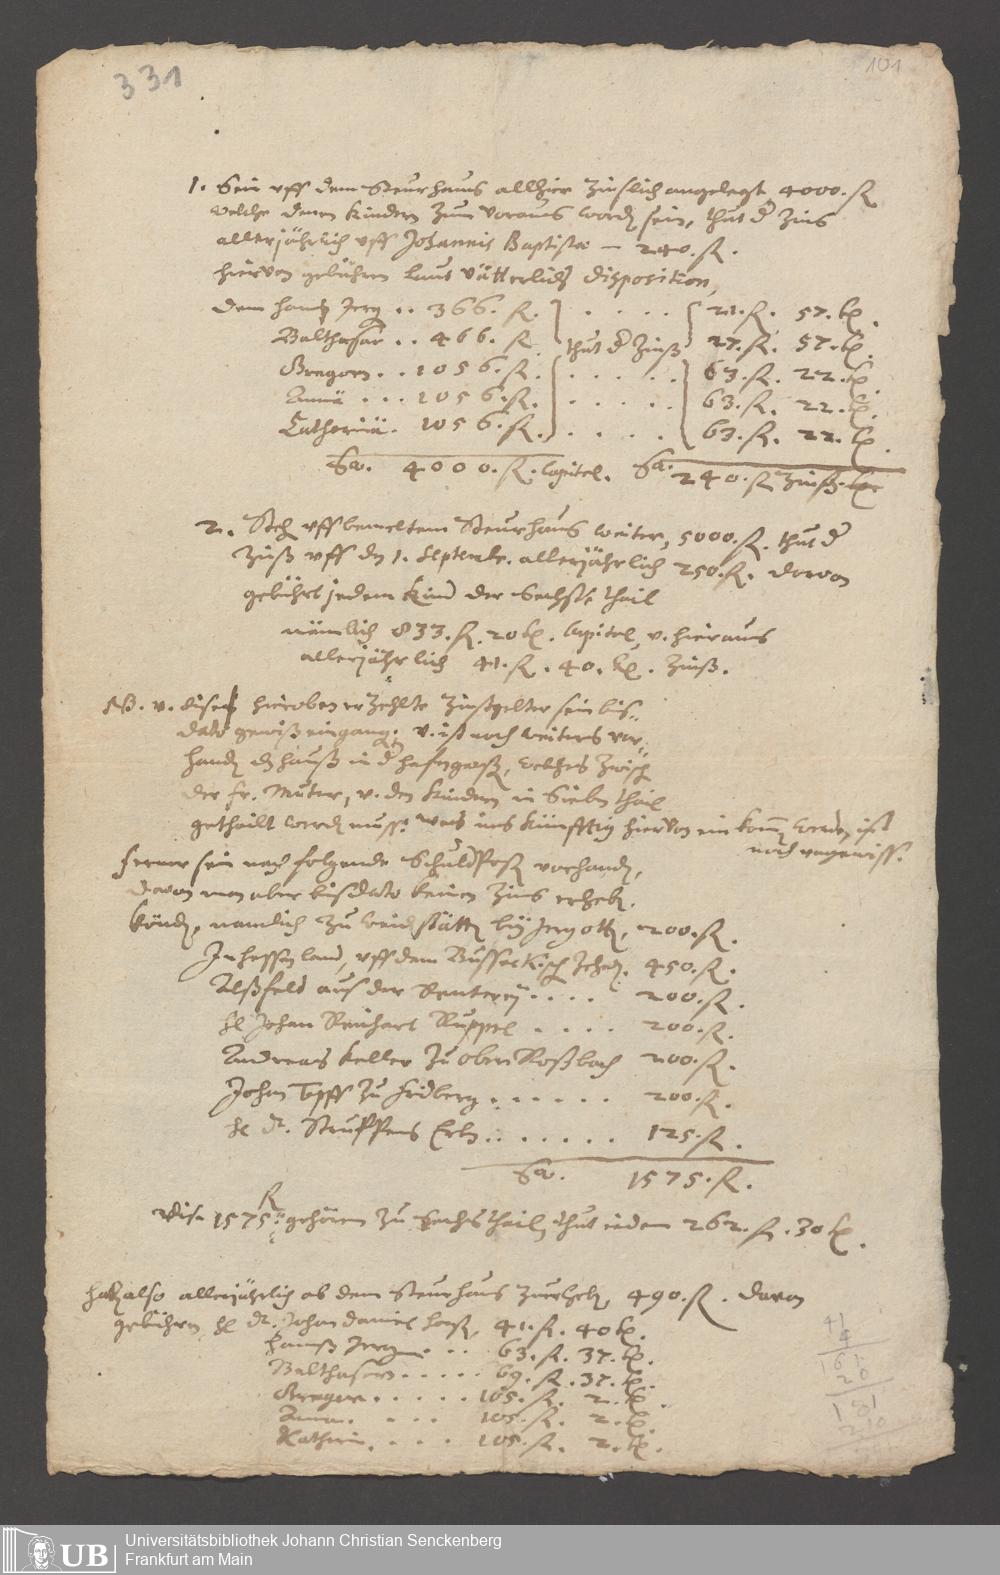 331
101
1. Sein uff dem Steurhaus allhier Zinslich angelegt 4000. fl
welche denen Kindern zum Voraus word sein, thut d Zins
allerjährlich uff Johannis Baptistae – 240. fl.
hiervon gebühren laut vätterlicher Disposition,
dem Hanß Jerg .. 366. fl. . . . . 21. fl. 57. kr.
Balthasar .. 466. fl. thut d Zinß 27. fl. 57. kr.
Gregorn .. 1056. fl. . . . . . 63. fl. 22. kr.
Annä ... 1056. fl. . . . . . 63. fl. 22. kr.
Catharinä. 1056. fl. . . . . 63. fl. 22. kr.
Sa. 4000. fl. Capitel. Sa. 240. fl Zinß.
2. Steh uff bemeltem Steurhaus weiter, 5000. fl. thut d
Zinß uff den 1. Septembr. allerjährlich 250. fl. davon
gebührt jedem Kind der Sechste theil
nämlich 833. fl. 20 kr. Capitel, v. hieraus
allerjährlich 41. fl. 40. kr. Zinß.
NB. v. dise hieroben erzehlte Zinsgelter sein bis
dato gewiß eingang, v. ist noch weiters vor
handen dz hauß in d hasengass, welches zwisch
der fr. Mutter, v. den Kindern in Sieben theil
getheilt werden muss. was ins künfftig hiervon einkom werde, ist
noch ungewiss.
ferner sein nach folgende Schuldposten vorhanden,
davon man aber bisdato keinen Zins erheb.
könden, namlich zu bey Jerg Ott, 200. fl.
In hessen land, uff dem Busseckisch 450. fl.
Alßfeld aus der Renterey .... 200. fl.
H Johan Reinhart Ruppel .... 200. fl.
Andreas Keller zu ober Roßbach 200. fl.
Johan zu Fridberg ...... 200. fl.
H dr. Erben ....... 125. fl.
Sa. 1575. fl.
Dise 1575 fl gehören zu Sechs theilen, thut iedem 262. fl. 30 kr.
hab also allerjährlich ob dem Steurhaus zuerheben, 490. fl. davon
gebühren, H dr. Johan Daniel 41. fl. 40 kr.
Hanß Jerg ... 63. fl. 37. kr.
Balthasarn ..... 69. fl. 37. kr.
Gregorn ..... 105. fl. 2. kr.
Anna. ... 105. fl. 2. kr.
Kathrin .... 105. fl. 2. kr.
41
4
161
20
UB
Universitätsbibliothek Johann Christian Senckenberg
Frankfurt am Main